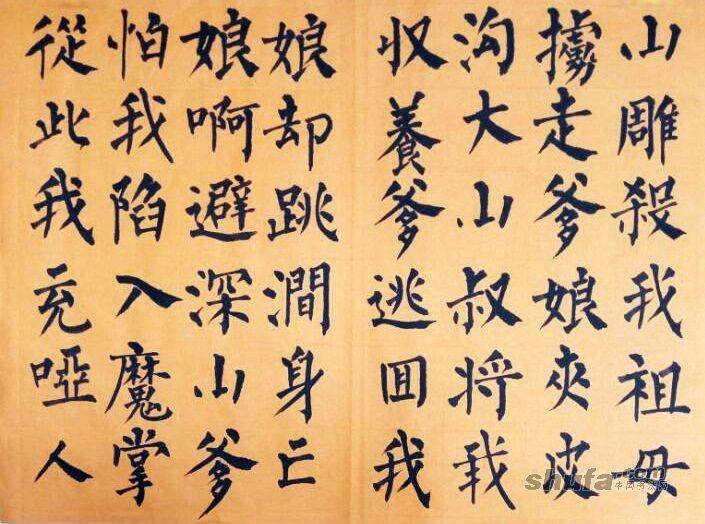 山雕殺我祖母
擄走爹娘夾皮
沟大山叔將我
収養爹逃囬我
娘却跳澗身亡
娘啊避深山爹
怕我陷入魔掌
從此我充啞人